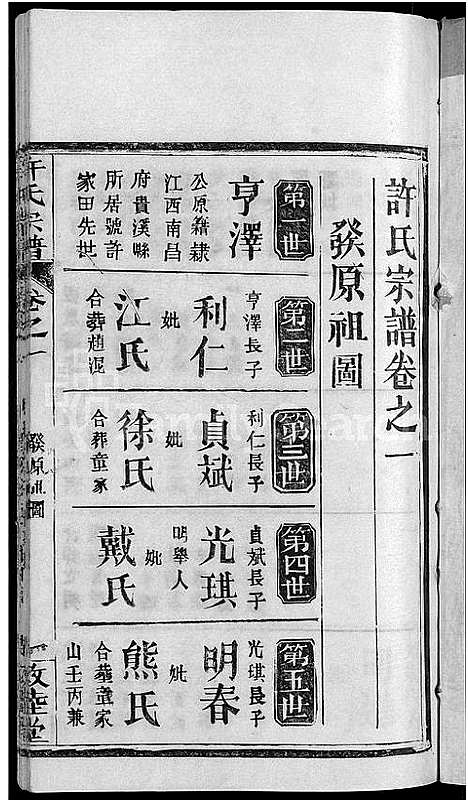 許氏宗譜卷之一
發原祖圖
第一世
亨澤
公原籍隸
江西南昌
府貴溪縣
所居號許
家田先世
第二世
亨澤長子
利仁
妣
江氏
合葬趙混
第三世
利仁長子
貞斌
妣
徐氏
合葬童家
第四世
貞斌長子
光琪
明舉人
妣
戴氏
第五世
光琪長子
明春
妣
熊氏
合葬童家
山壬丙兼
許氏宗譜
卷之一
發原祖圖
敦睦堂